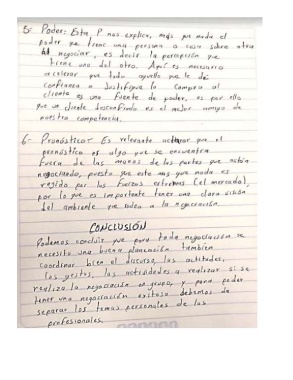 5- Poder: Esta P nos explica, más que nada el
poder que tiene una persona o cosa sobre otra
al negociar, es decir la percepción que
tiene uno del otro. Aquí es necesario
acelerar que todo aquello que le dé
confianza o justifique la compra al
cliente es una fuente de poder, es por ello
que un cliente desconfiado es el mejor amigo de
nuestra competencia.
6- Pronóstico: Es relevante aclarar que el
pronóstico es algo que se encuentra
fuera de las manos de las partes que están
negociando, puesto que este más que nada es
regido por las fuerzas externas (el mercado),
por lo que es importante tener una clara visión
del ambiente que rodea a la negociación.
CONCLUSIÓN
Podemos concluir que para toda negociación se
necesita una buena planeación también
coordinar bien el discurso, las actitudes,
los gestos, las actividades a realizar si se
realiza la negociación en grupo, y para poder
tener una negociación exitosa debemos de
separar los temas personales de los
profesionales.